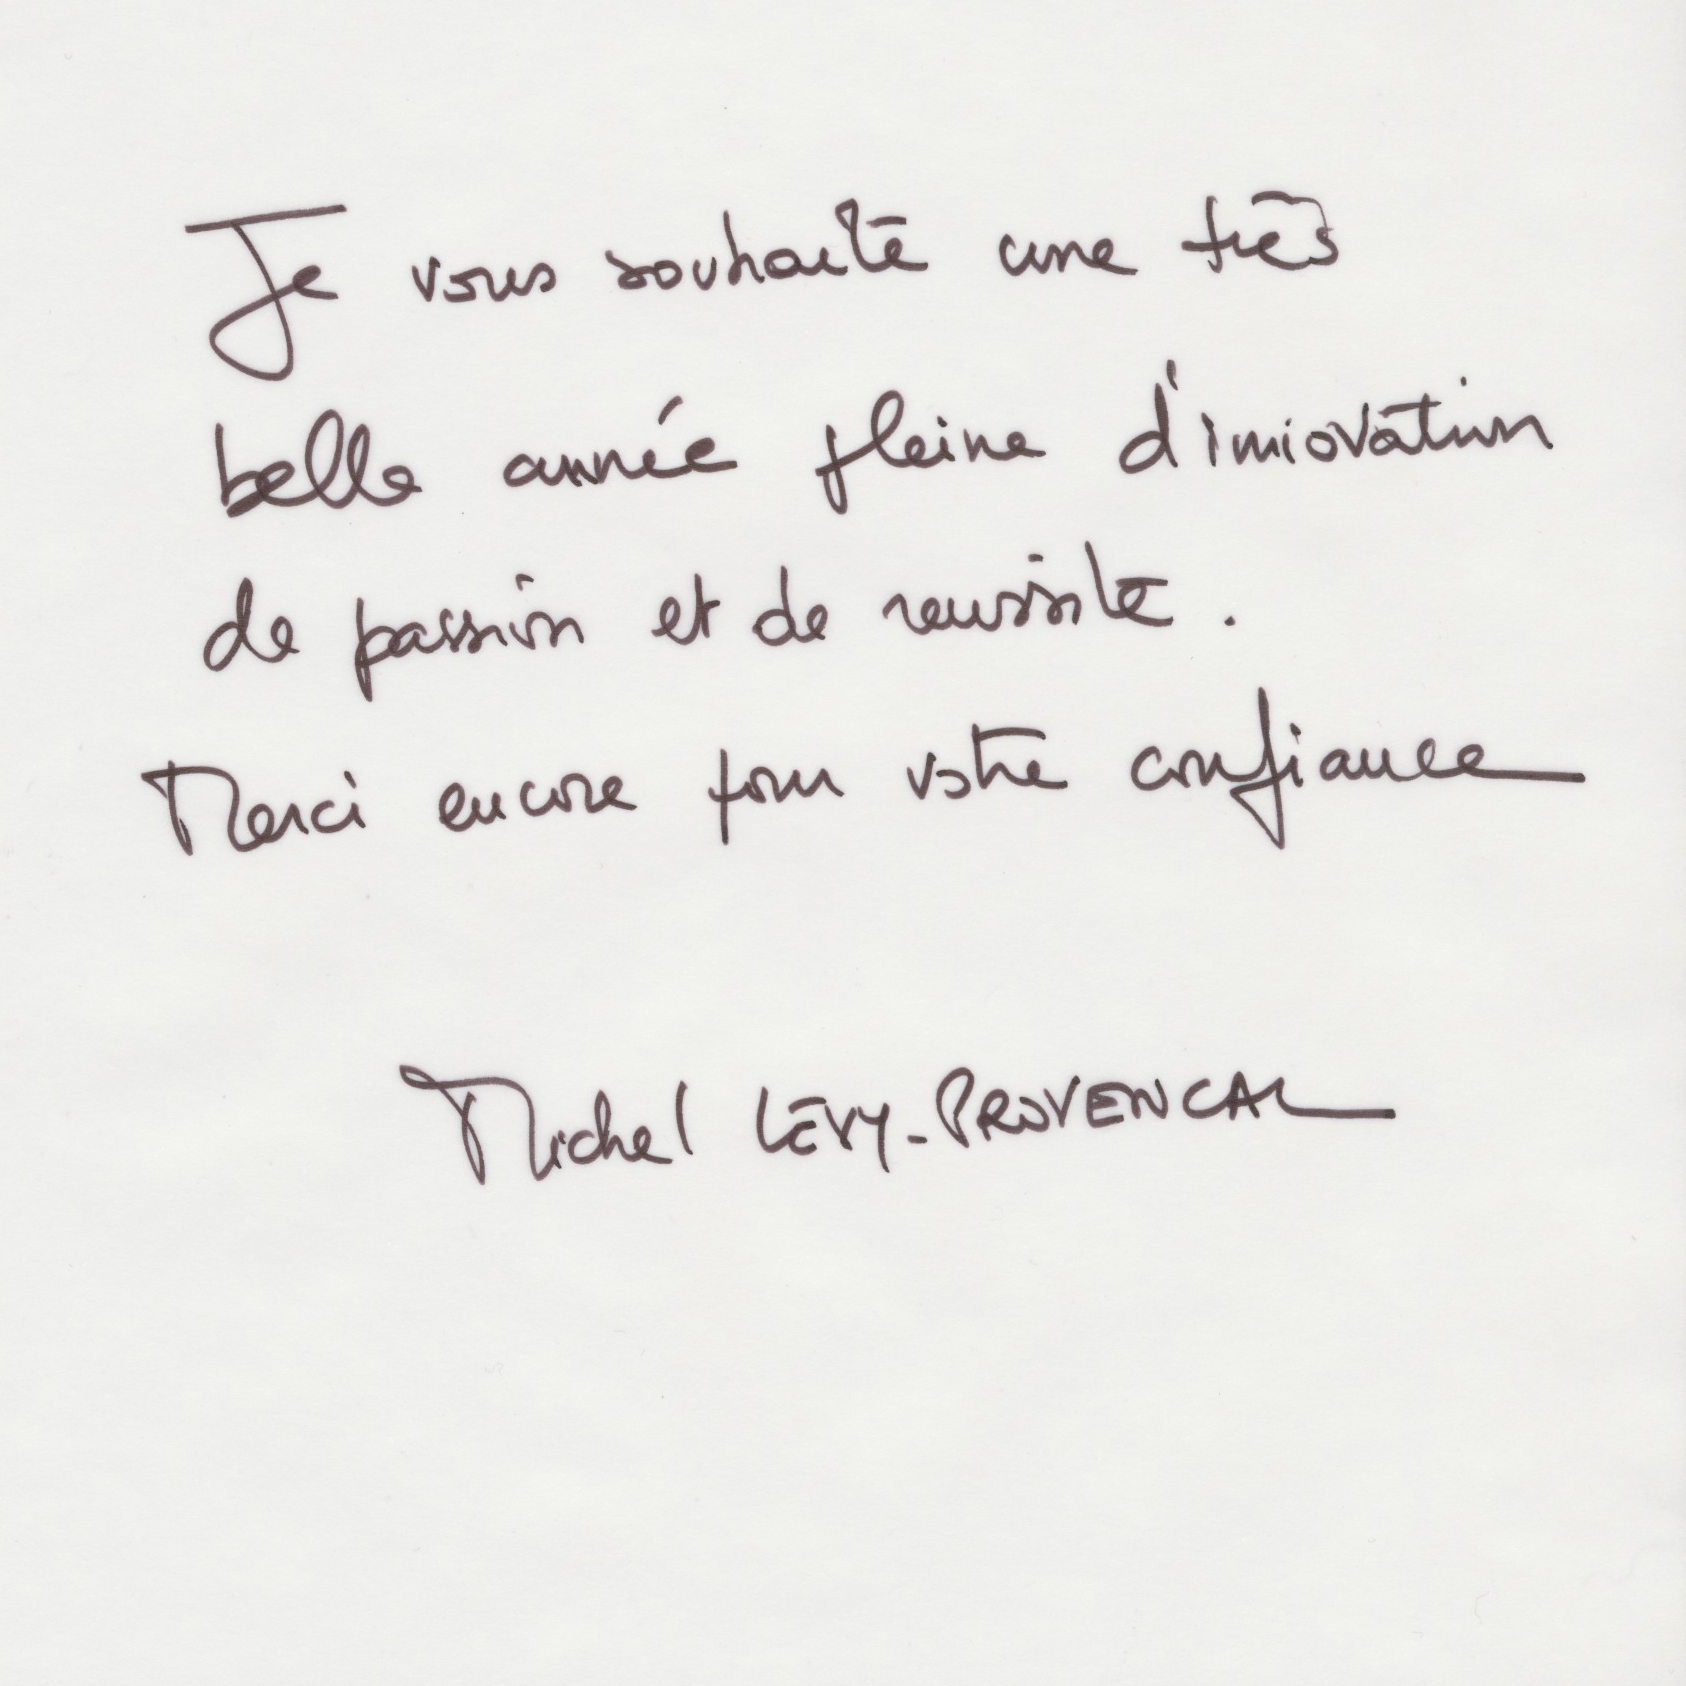 Je vous souhaite une très
belle année pleine d'innovation
de passion et de reussite.
Merci encore pour votre confiance
Michel LÉVY-PROVENCAL